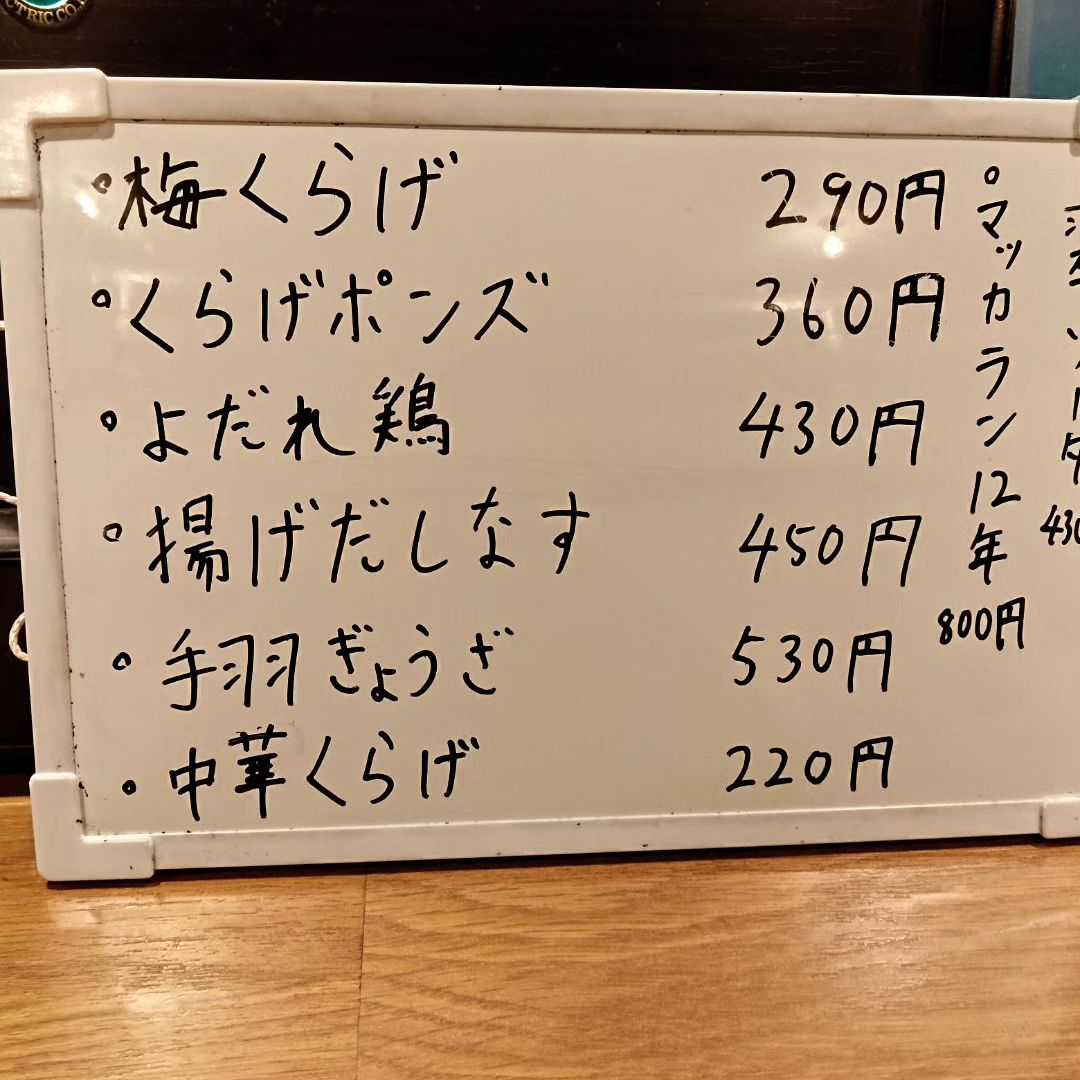 。梅くらげ 290円
。くらげポンズ 360円
。よだれ鶏 430円
。揚げだしなす 450円
。手羽ぎょうざ 530円
。中華くらげ 220円
。マッカラン12年 800円